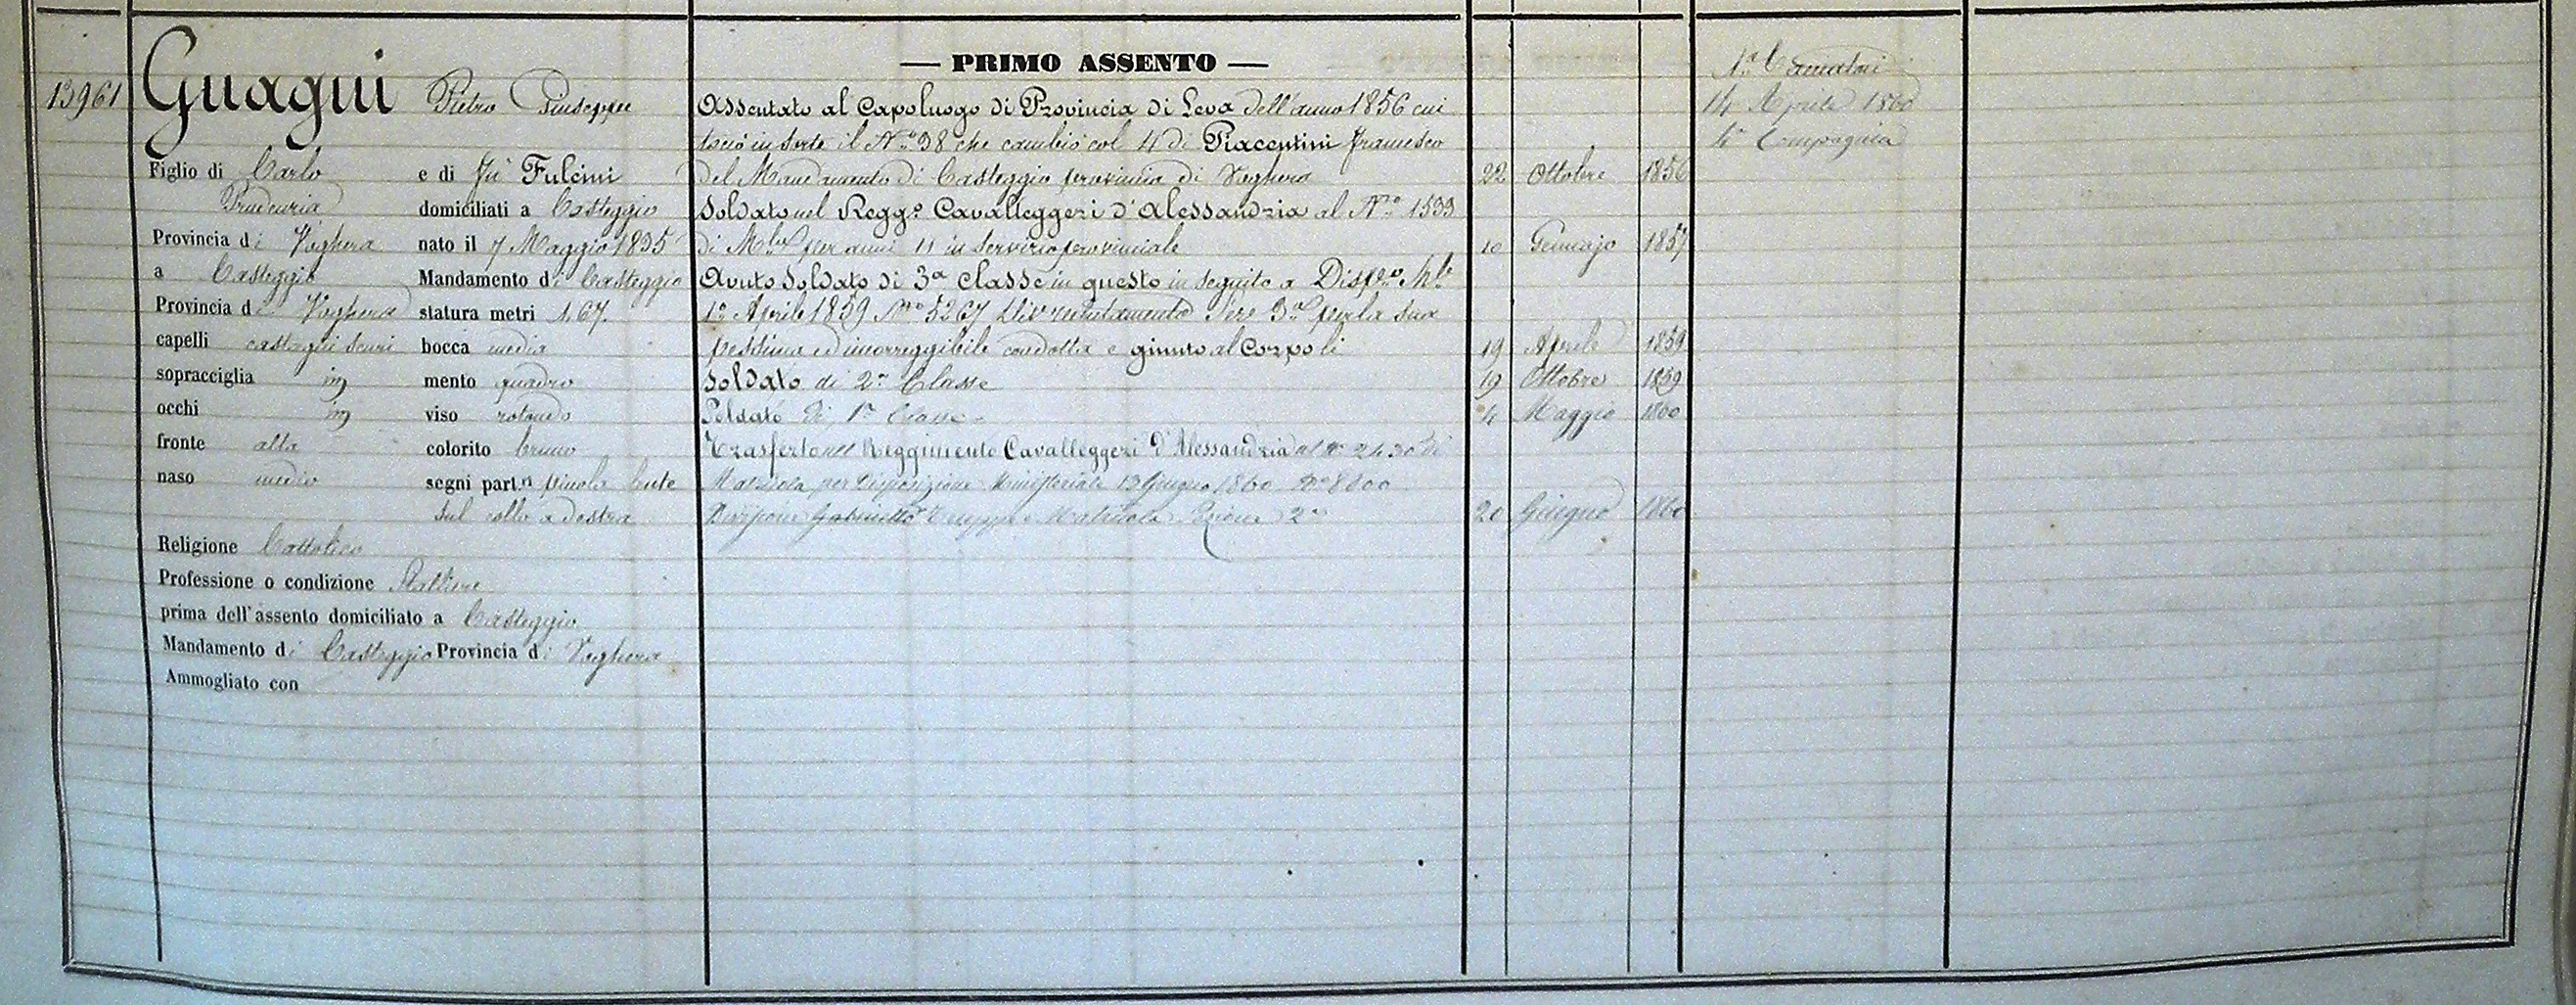 13961
Guagni Pietro Giuseppe
Figlio di Carlo e di fu Fulcini
Prudenzia domiciliati a Casteggio
Provincia di Voghera nato il 7 Maggio 1835
a Casteggio Mandamento di Casteggio
Provincia di Voghera statura metri 1.67.
capelli castagni scuri bocca media
sopracciglia im mento quadro
occhi im viso rotondo
fronte alta colorito bruno
naso medio segni part.ri piccola
sul collo a destra
Religione Cattolico
Professione o condizione Stalliere
prima dell'assento domiciliato a Casteggio
Mandamento di Casteggio Provincia di Voghera
Ammogliato con
— PRIMO ASSENTO —
Assentato al Capoluogo di Provincia di Leva dell'anno 1856 cui
toccò in sorte il N.o 38 che cambiò col 4 di Piacentini Francesco
del Mandamento di Casteggio provincia di Voghera 22 Ottobre 1856
Soldato nel Regg.o Cavalleggeri d'Alessandria al N.o 1533
di M.la per anni 11 in servizio provinciale 10 Gennajo 1857
Avuto Soldato di 3a Classe in questo in seguito a Disp.o M.le
1o Aprile 1859 N.o 5267 per la sua
pessima ed incorreggibile condotta e giunto al Corpo li 19 Aprile 1859
Soldato di 2a Classe 19 Ottobre 1859
Soldato di 1a Classe 4 Maggio 1860
Trasferto nel Reggimento Cavalleggeri d'Alessandria al N.o 2430 di
Matricola per Disposizione Ministeriale 13 Giugno 1860 N.o 8800
Divisione Gabinetto Truppa e Matricola Sezione 2a 20 Giugno 1860
14 Aprile 1860
4a Compagnia